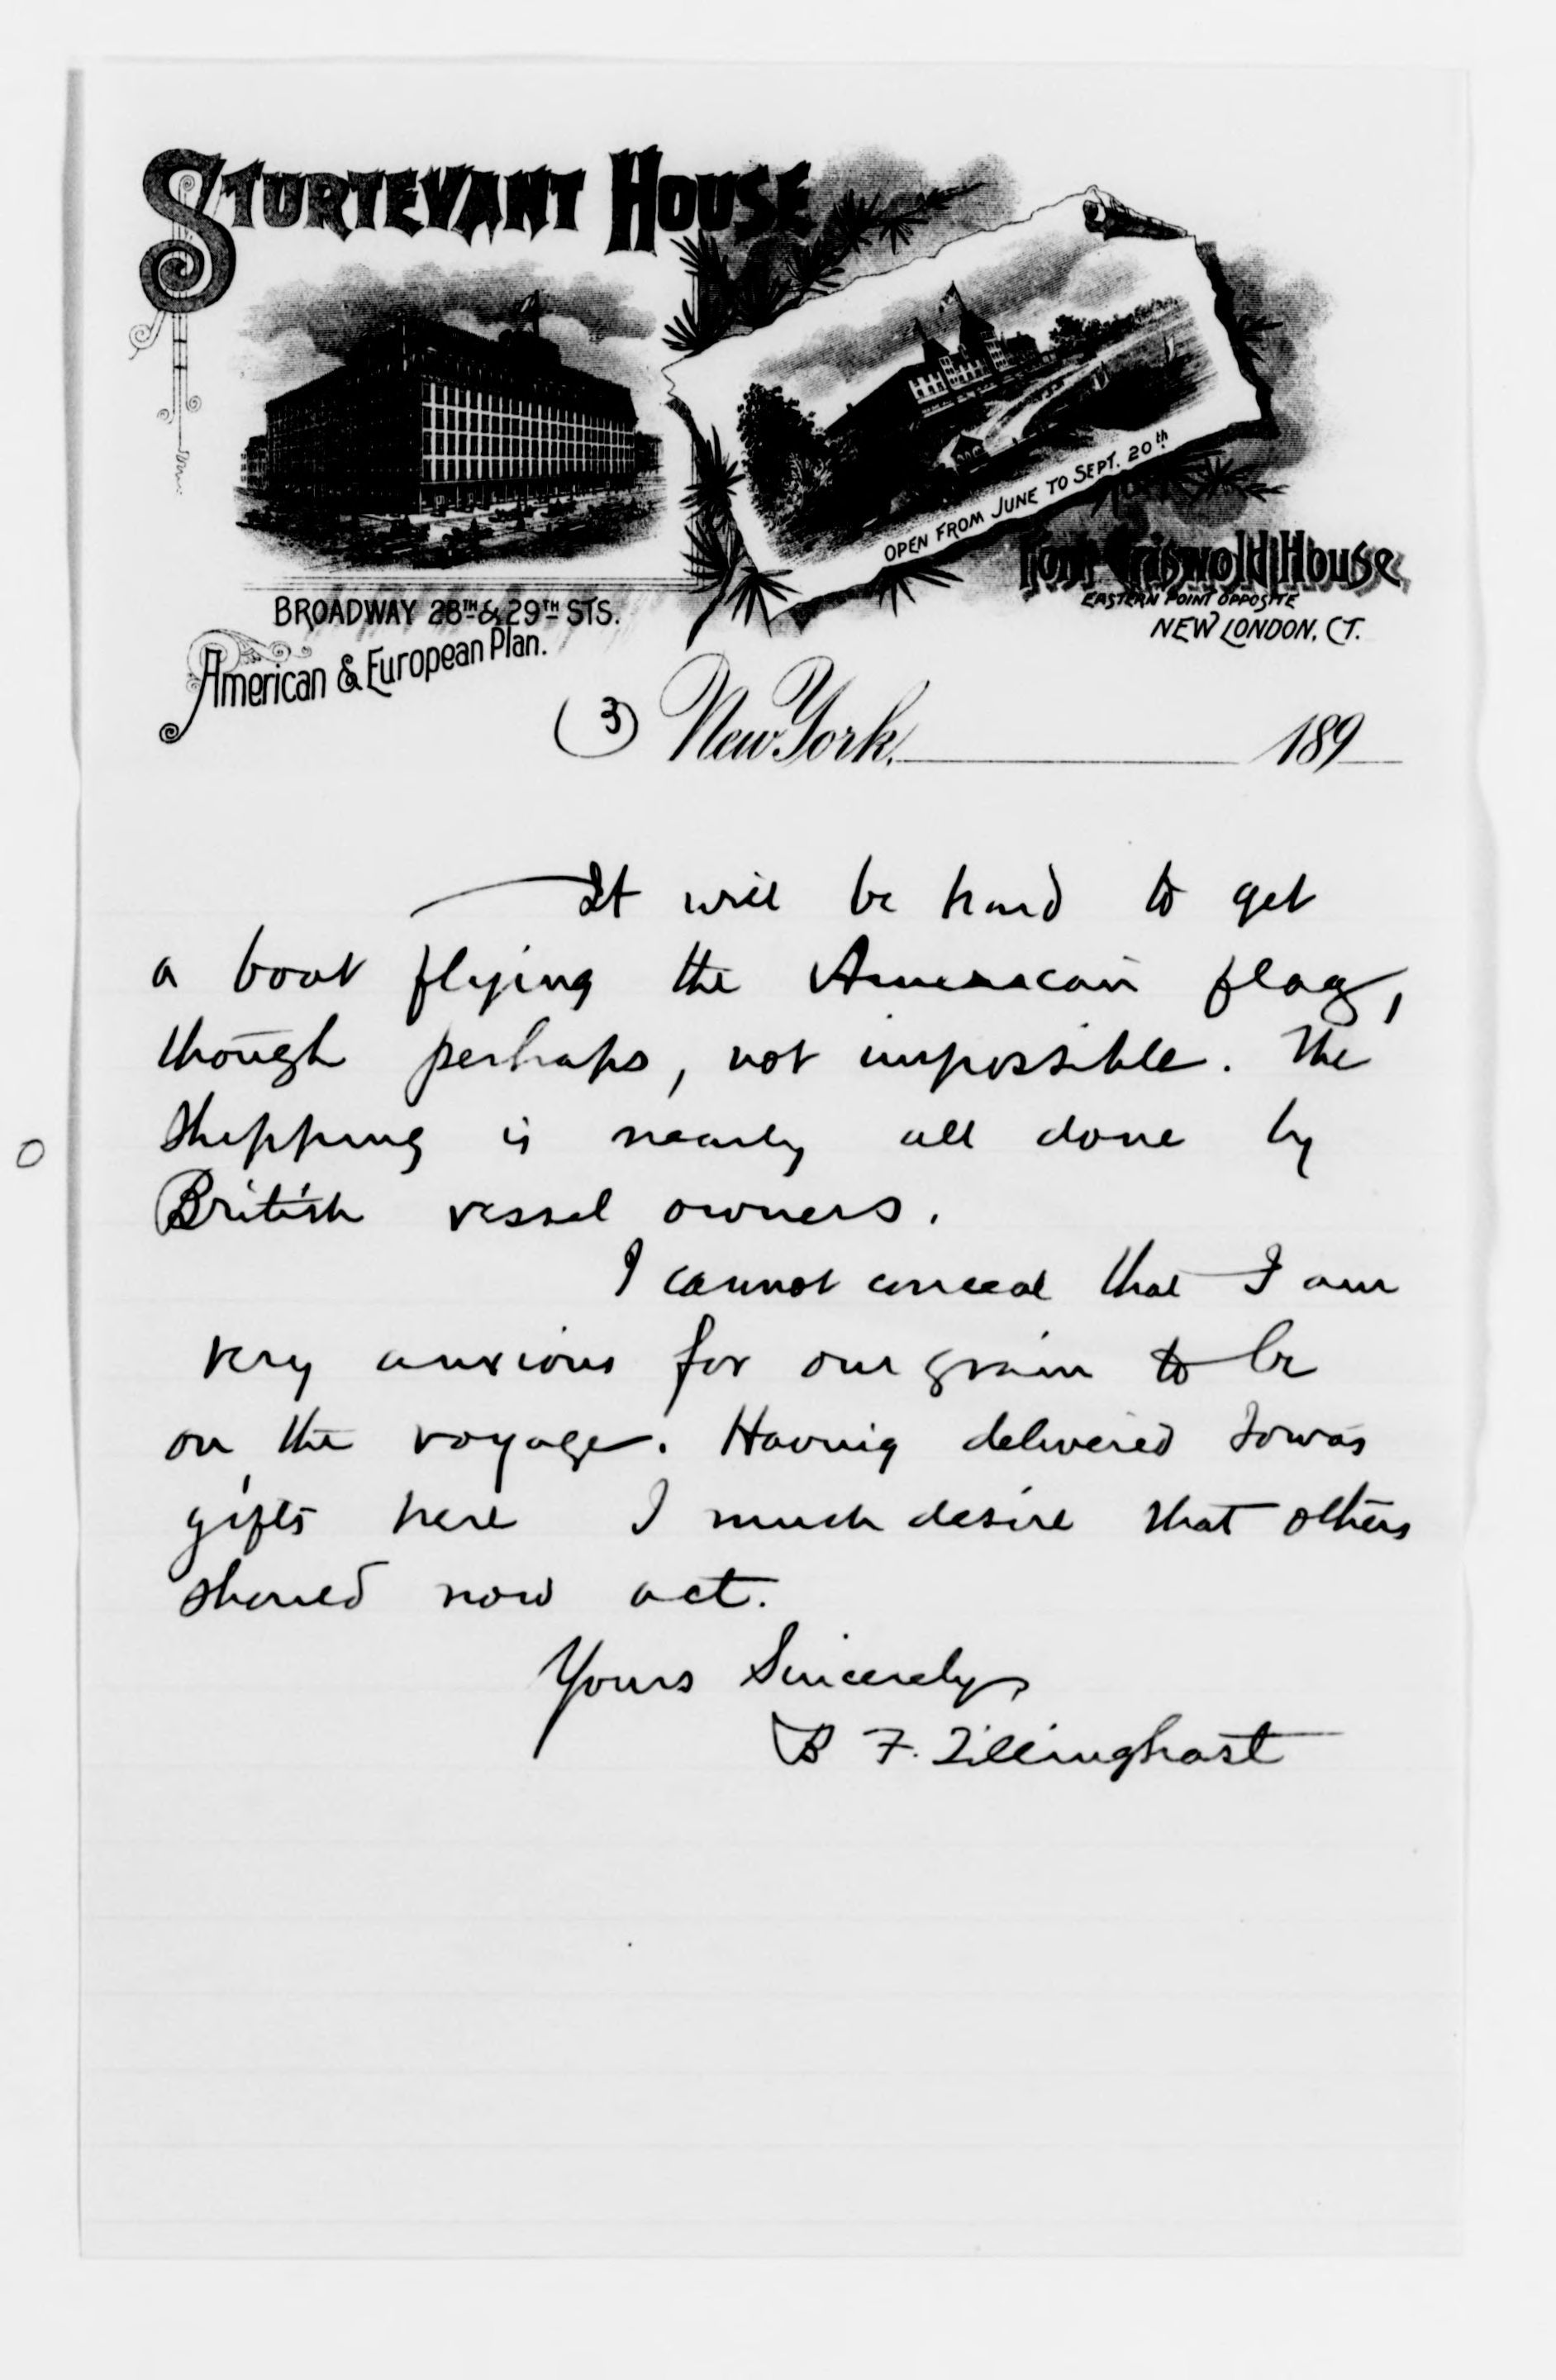 STURTEVANT HOUSE
OPEN FROM JUNE TO SEPT. 20th
Fort Griswold House
EASTERN POINT OPPOSITE
NEW LONDON, CT.
BROADWAY 28TH & 29TH STS.
American & European Plan.
(3) New York, 189
It will be hard to get
a boat flying the American flag,
though perhaps, not impossible. The
shipping is nearly all done by
British vessel owners.
I cannot conceal that I am
very anxious for our grain to be
on the voyage. Having delivered Iowas
gifts here I much desire that others
should now act.
Yours Sincerely
B F. Tillinghast